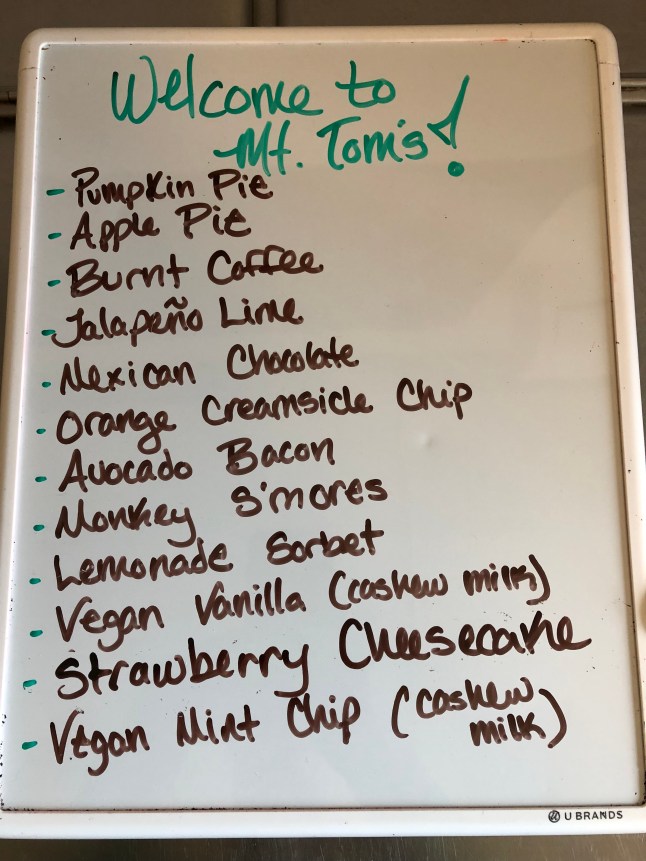 Welcome to
Mt. Tom's!
- Pumpkin Pie
- Apple Pie
- Burnt Coffee
- Jalapeño Lime
- Mexican Chocolate
- Orange Creamsicle Chip
- Avocado Bacon
- Monkey S'mores
- Lemonade Sorbet
- Vegan Vanilla (cashew milk)
- Strawberry Cheesecake
- Vegan Mint Chip (cashew
milk)
U BRANDS